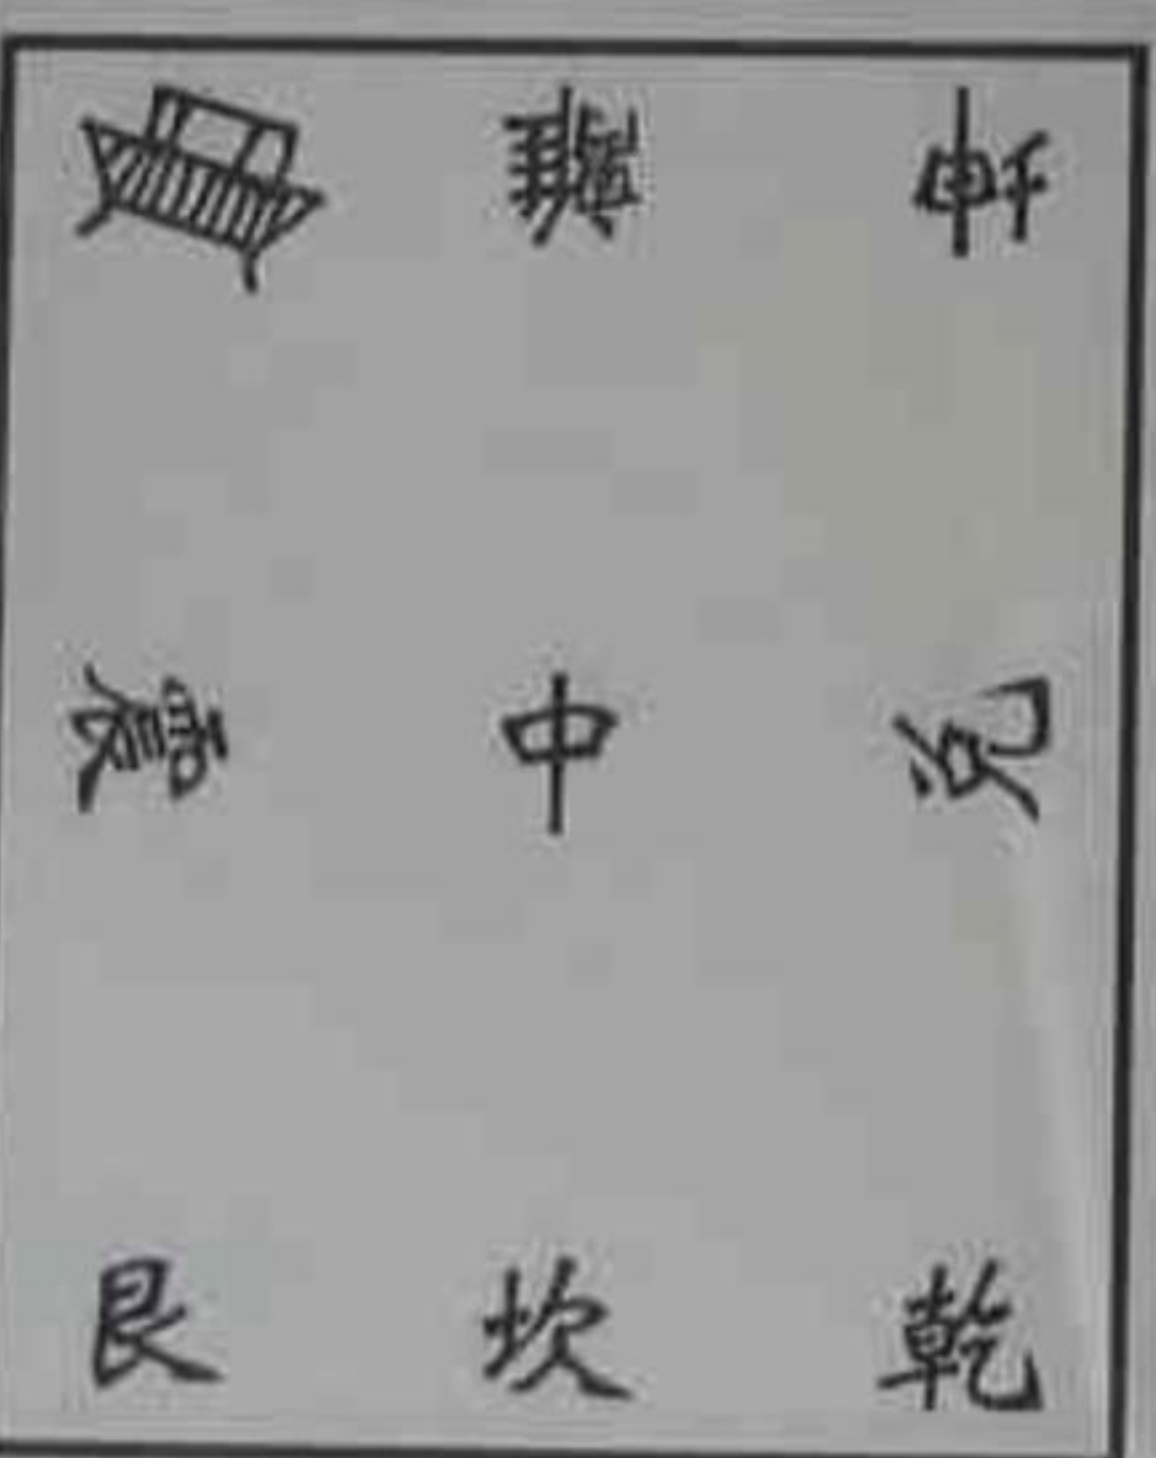 離 坤
震 中 兑
艮 坎 乾